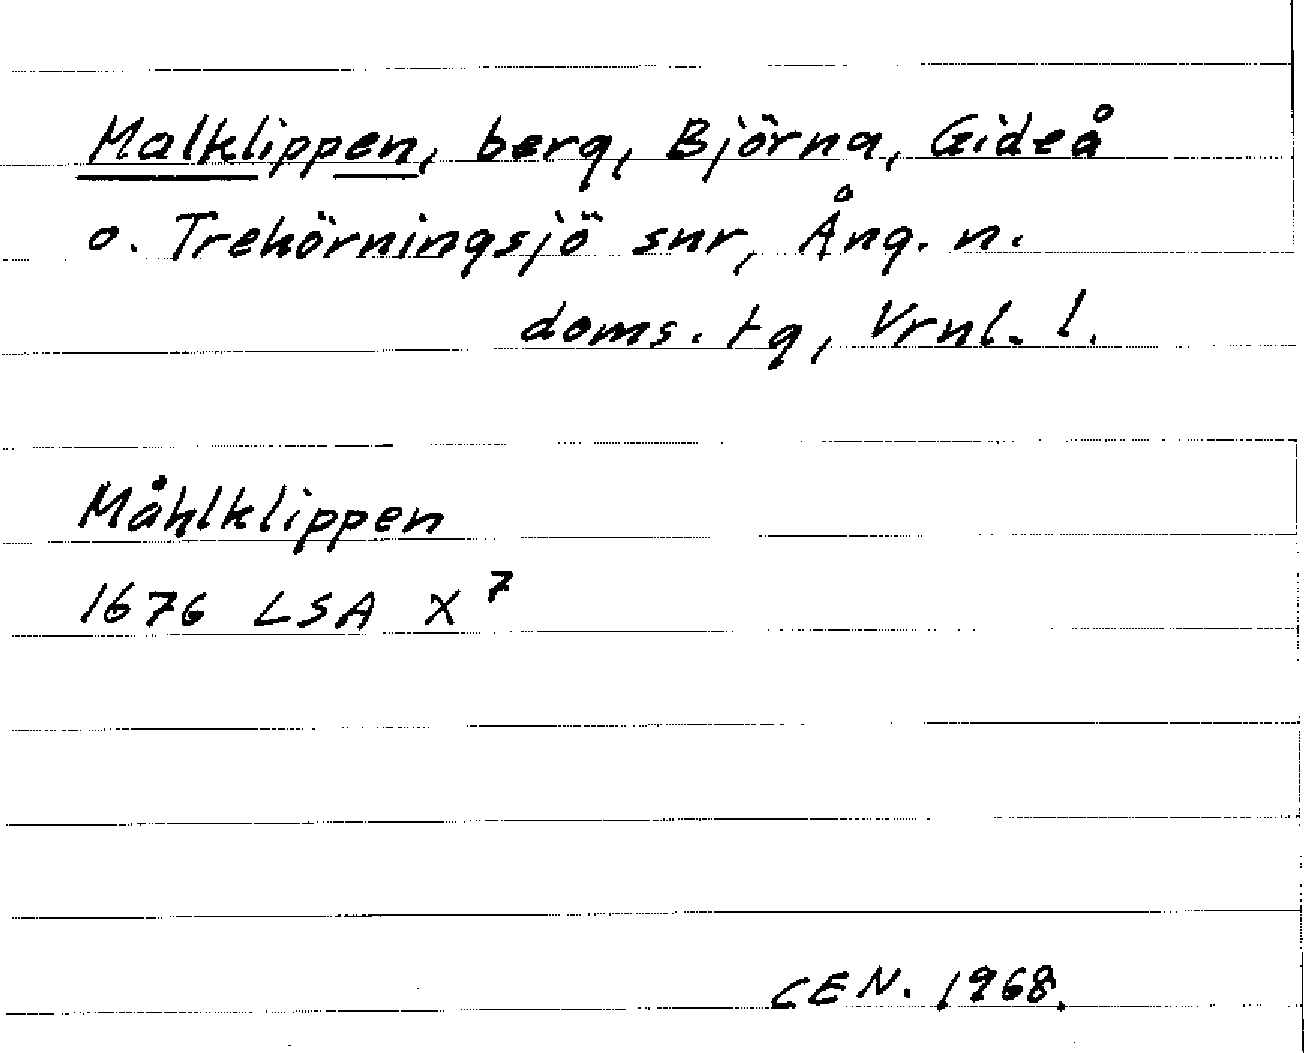 Malklippen, berg, Björna, Gideå
o. Trehörningsjö snr, Ång. n.
doms. tg, Vrnl. l.
Måhlklippen
1676 LSA X 7
CEN. 1968.